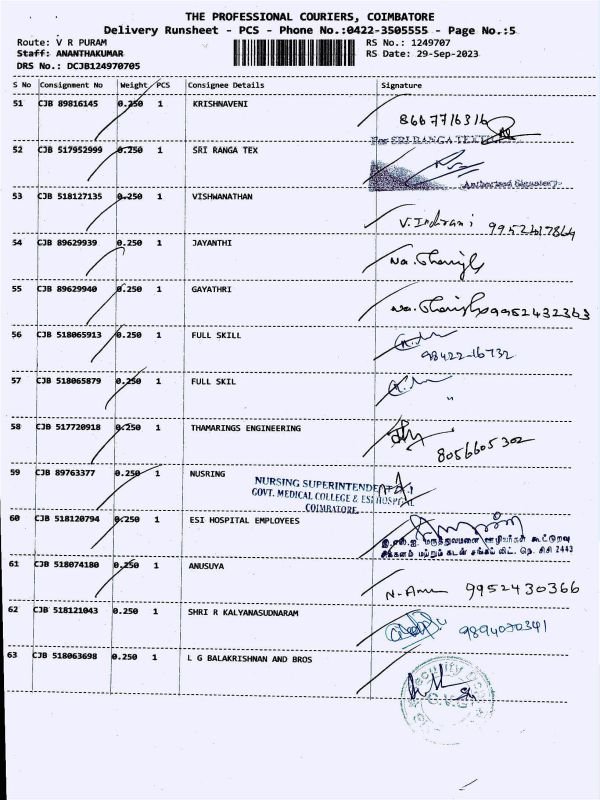 THE PROFESSIONAL COURIERS, COIMBATORE
Delivery Runsheet - PCS - Phone No.:0422-3505555 - Page No.:5
Route: V R PURAM
RS No.: 1249707
Staff: ANANTHAKUMAR
RS Date: 29-Sep-2023
DRS No.: DCJB124970705
S No Consignment No Weight PCS Consignee Details Signature
51 CJB 89816145 0.250 1 KRISHNAVENI
8667716316
For SRI RANGA TEXTILE
52 CJB 517952999 0.250 1 SRI RANGA TEX
Authorised Signatory
53 CJB 518127135 0.250 1 VISHWANATHAN
V. Indirani 9952617864
54 CJB 89629939 0.250 1 JAYANTHI
55 CJB 89629940 0.250 1 GAYATHRI
9952432363
56 CJB 518065913 0.250 1 FULL SKILL
98422-16732
57 CJB 518065879 0.250 1 FULL SKIL
"
58 CJB 517720918 0.250 1 THAMARINGS ENGINEERING
8056605302
59 CJB 89763377 0.250 1 NUSRING
NURSING SUPERINTENDENT
GOVT. MEDICAL COLLEGE & ESI HOSPITAL
COIMBATORE.
60 CJB 518120794 0.250 1 ESI HOSPITAL EMPLOYEES
இ.எஸ்.ஐ. மருத்துவமனை ஊழியர்கள் கூட்டுறவு
சிக்கனம் மற்றும் கடன் சங்கம் லிட். நெ. சிசி 2443
61 CJB 518074180 0.250 1 ANUSUYA
9952430366
62 CJB 518121043 0.250 1 SHRI R KALYANASUDNARAM
9894070341
63 CJB 518063698 0.250 1 L G BALAKRISHNAN AND BROS